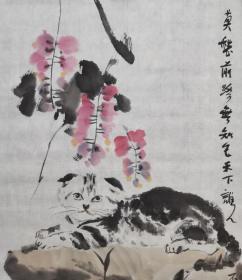 莫愁前路無知己天下誰人